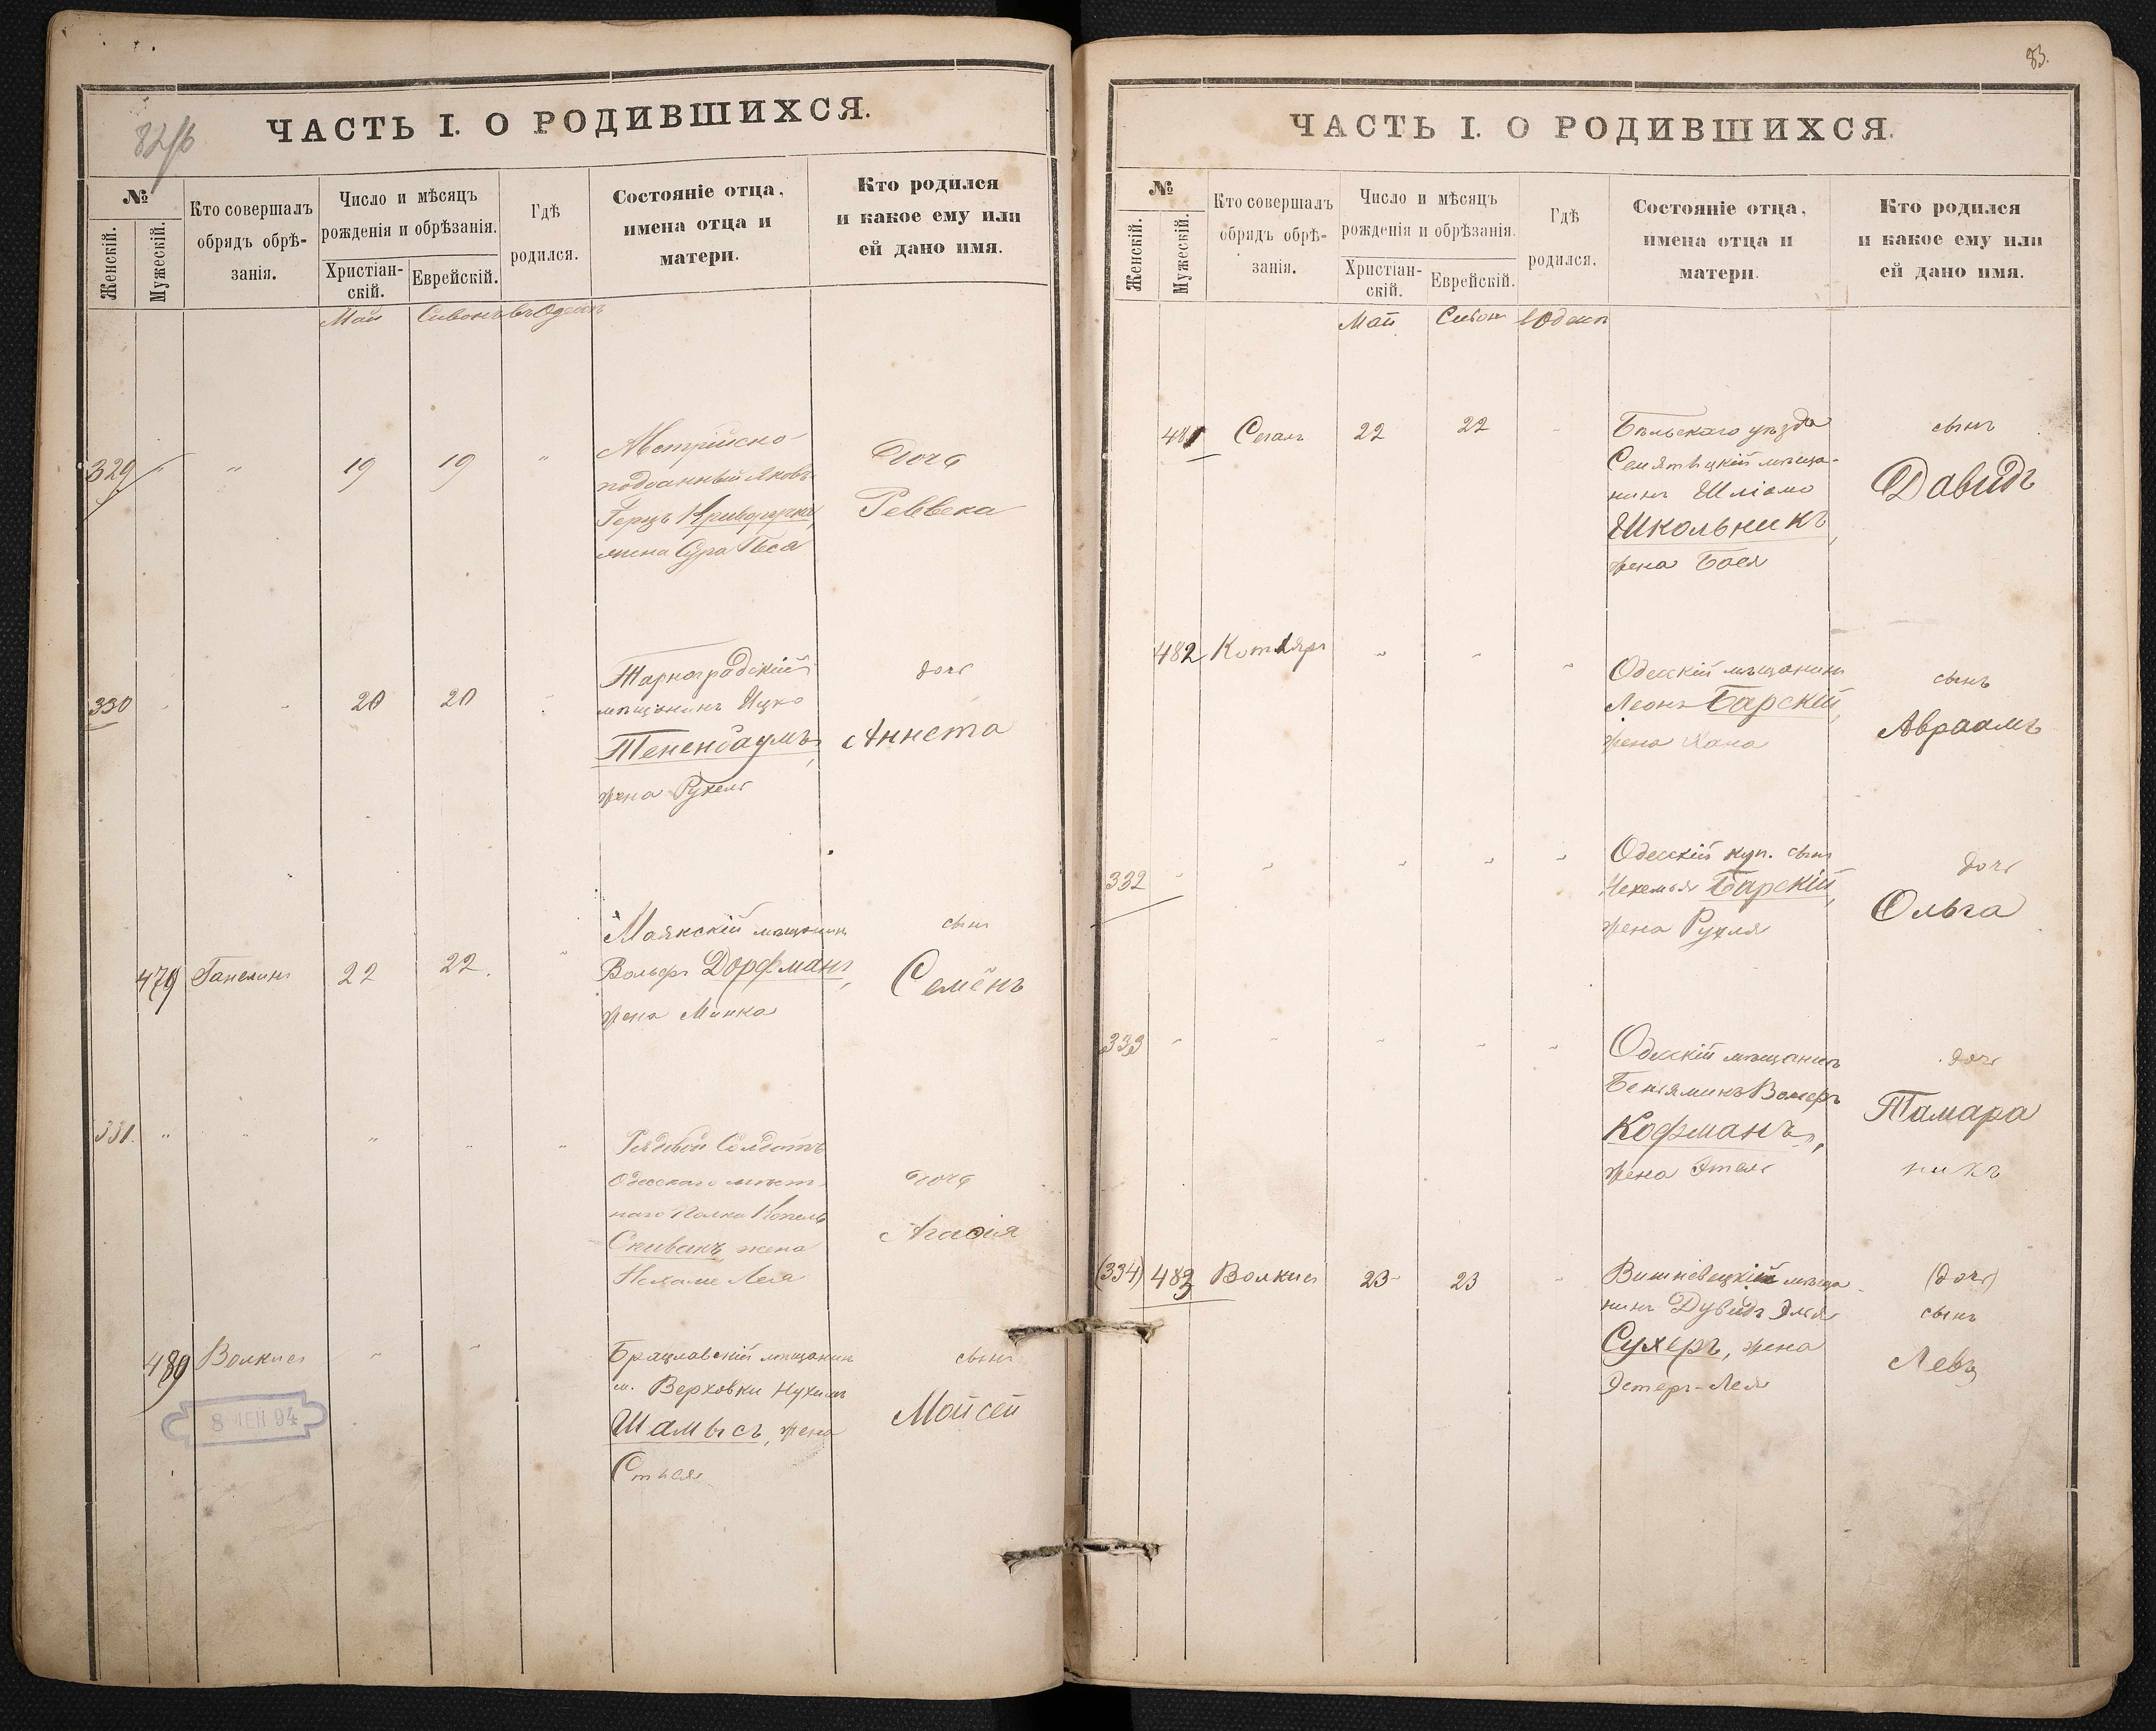 82/б
ЧАСТЬ I. О РОДИВШИХСЯ.
№
Женскій.
Мужескій.
Кто совершалъ
обрядъ обрѣ-
занія.
Число и мѣсяцъ
рожденія и обрѣзанія.
Христіан-
скій.
Еврейскій.
Гдѣ
родился.
Состояніе отца,
имена отца и
матери.
Кто родился
и какое ему или
ей дано имя.
Май Сивонъ въ Одессѣ
329 " " 19 19 "
Австрійско-
подданный Яковъ
Герцъ
жена Сура Песя
Дочь
Реввека
330 " " 20 20 "
Тарноградскій
мѣщанинъ Ицко
Тененбаумъ,
жена Рухель
дочь
Аннета
479 Ганелинъ 22 22. "
Маякскій мѣщанинъ
Вольфъ Дорфманъ,
жена Минка
сынъ
Семёнъ
331. " " " " "
Рядовой Солдатъ
Одесскаго мѣст-
наго Полка Копель
Спивакъ жена
Нехаме Леа
дочь
Агасія
480 Волкисъ " "
Брацлавскій мѣщанинъ
м. Верховки Нухимъ
Шамысъ, жена
Стыся
сынъ
Мойсей
83.
ЧАСТЬ I. О РОДИВШИХСЯ.
№
Женскій.
Мужескій.
Кто совершалъ
обрядъ обрѣ-
занія.
Число и мѣсяцъ
рожденія и обрѣзанія.
Христіан-
скій.
Еврейскій.
Гдѣ
родился.
Состояніе отца,
имена отца и
матери.
Кто родился
и какое ему или
ей дано имя.
Май Сивонъ в Одессѣ
481 Сегалъ 22 22 "
Бѣльскаго уѣзда
Семятицкій мѣща-
нинъ Шліомо
Школьникъ,
жена Бася
сынъ
Давидъ
482 Котляръ " " "
Одесскій мѣщанинъ
Леонъ Барскій,
жена Хана
сынъ
Авраамъ
332 " " " " "
Одесскій куп. сынъ
Нехемья Барскій,
жена Рухля
дочь
Ольга
333 " " " " "
Одесскій мѣщанинъ
Беньяминъ Вольфъ
Кофманъ,
жена Этель
дочь
Тамара
никъ
(334) 483 Волкисъ 23 23 "
Вишневецкій мѣща-
нинъ Дувидъ Эля
Сухеръ, жена
Эстеръ-Лея
(дочь)
сынъ
Левъ